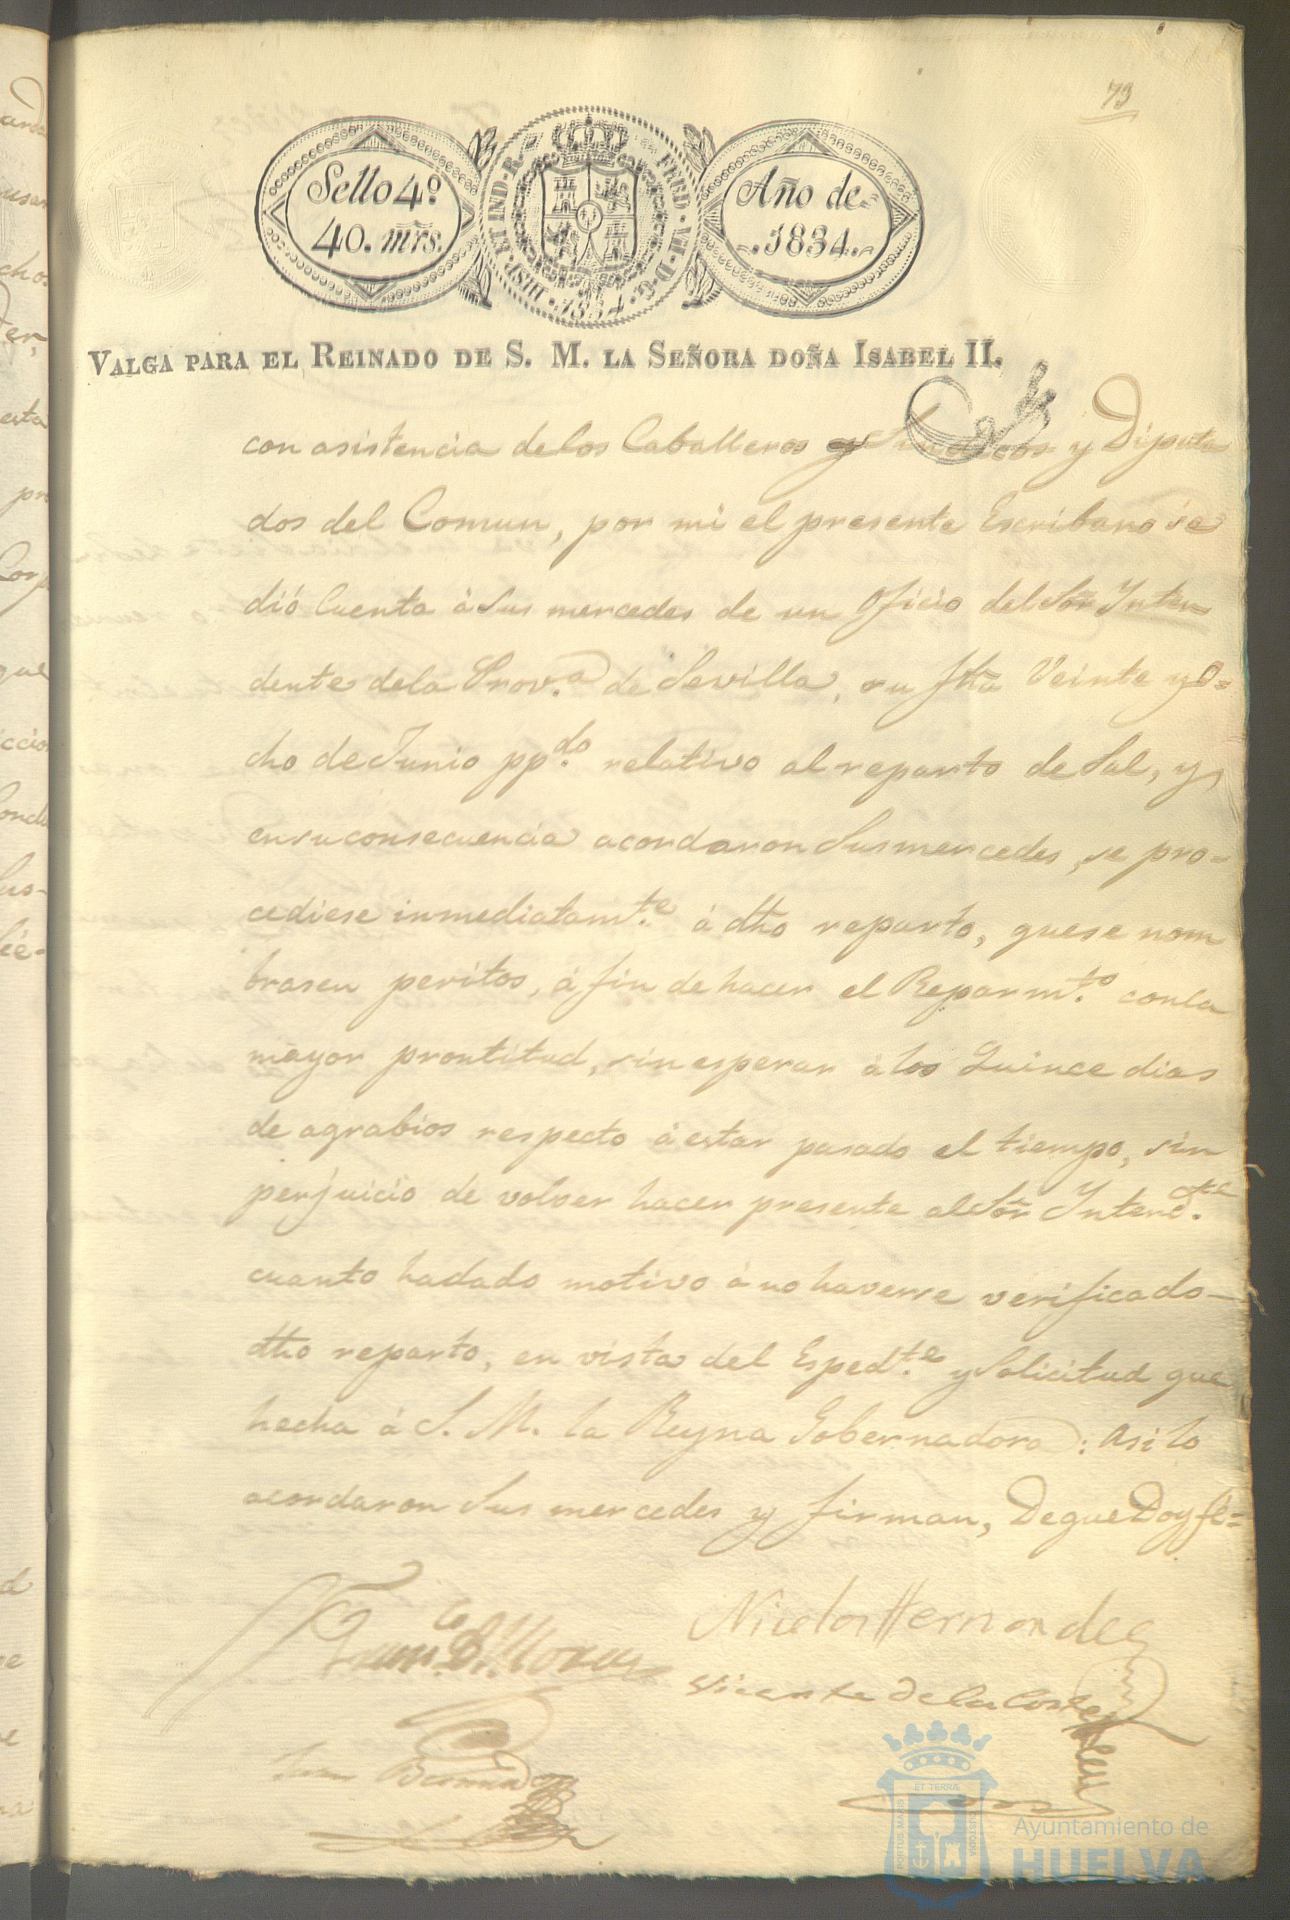 73
Sello 4º
40. mrs.
HISP. ET IND. R. FERD. VII. D. G. 1834
Año de
1834.
VALGA PARA EL REINADO DE S. M. LA SEÑORA DOÑA ISABEL II.
con asistencia delos Caballeros y Sindicos y Diputa
dos del Comun, por mi el presente Escribano se
dió Cuenta á Sus mercedes de un Oficio del Sor Inten
dente dela Prov.a de Sevilla, su fha Veinte y o=
cho de Junio pp.do relativo al reparto de Sal, y
ensuconsecuencia acordaron Susmercedes, se pro=
cediese inmediatam.te á dho reparto, quese nom
brasen peritos, á fin de hacer el Reparm.to conla
mayor prontitud, sin esperar á los Quince dias
de agrabios respecto á estar pasado el tiempo, sin
perjuicio de volver hacer presente alSor Intend.te
cuanto hadado motivo á no haverse verificado
dho reparto, en vista del Esped.te y Solicitud que
hecha á S. M. la Reyna Gobernadora: Asi lo
acordaron Sus mercedes y firman, Deque Doy fé=
Nicolas Hernandez
Vicente de la Corte
Juan Bermudez
ET TERRÆ
PORTUS MARIS
CUSTODIA
Ayuntamiento de
HUELVA